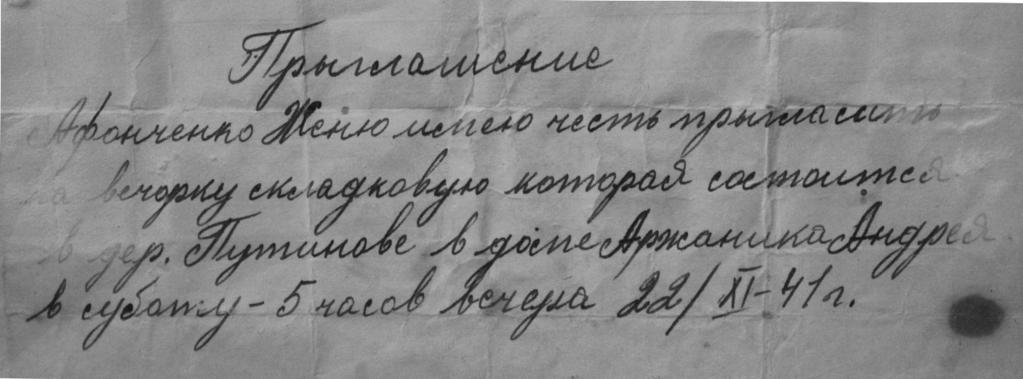 Прыглашение
Афонченко Женю имею честь прыгласить
на вечорку складковую которая состоится
в дер. Путинове в доме Аржаника Андрея
в суботу - 5 часов вечера 22/XI-41г.